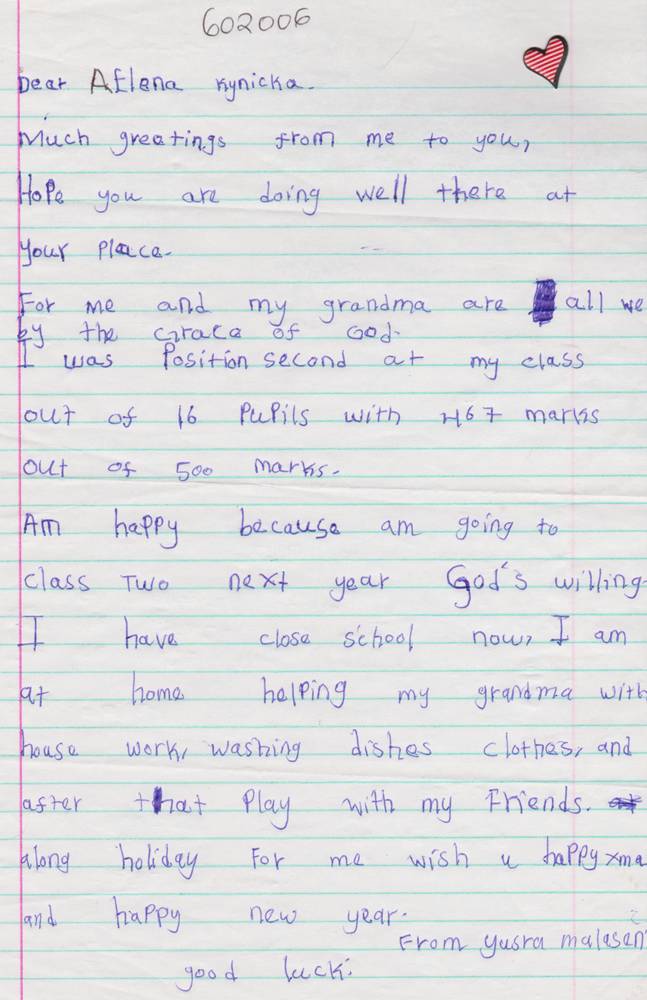 602006
Dear AElena Kynicka.
Much greetings from me to you,
Hope you are doing well there at
your place.
For me and my grandma are all we
by the Grace of God.
I was Position second at my class
out of 16 PuPils with 467 marks
out of 500 marks.
Am happy because am going to
class Two next year God's willing.
I have close school now, I am
at home helping my grandma with
house work, washing dishes clothes, and
after that Play with my Friends.
along holiday For me wish u happy xma
and happy new year.
From yusra malasen
good luck.